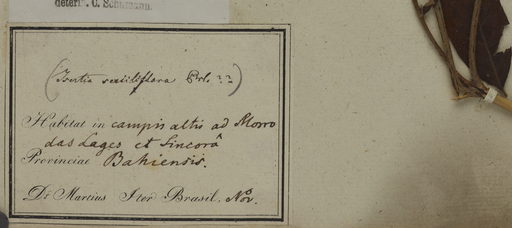 determ. C. Schumann.
(Isertia sessiliflora Prl. ??)
Habitat in campis altis ad Morro
das Lages et Sincorâ
Provinciae Bahiensis.
Dr Martius Iter Brasil. Nov.